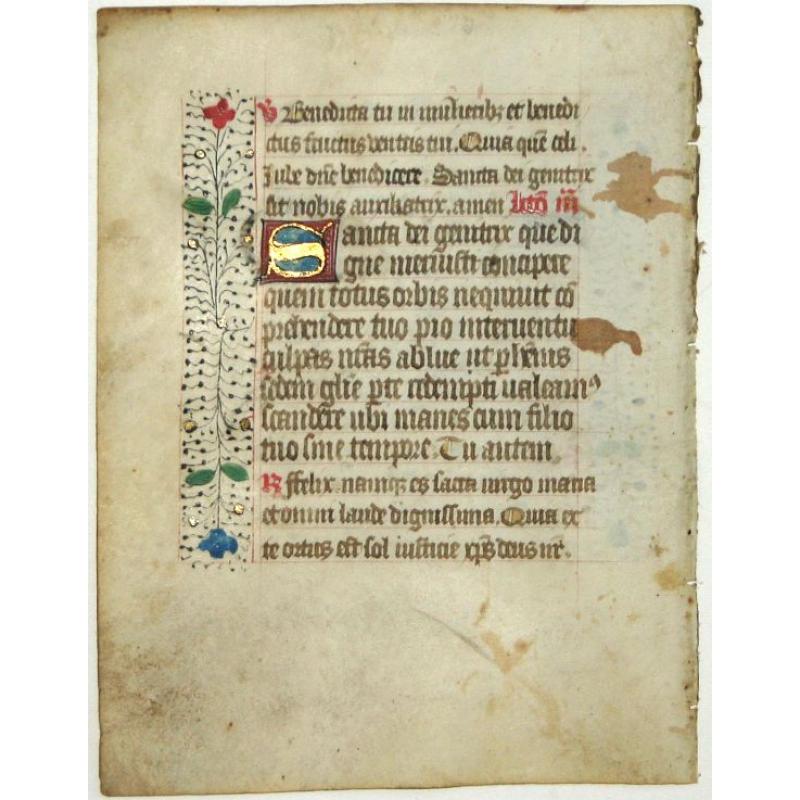 V Benedicta tu in mulieribꝫ et benedi
ctus fructus ventris tui. Quia quē celi.
Iube dn̄e benedicere. Sancta dei genitrix
sit nobis auxiliatrix. amen Lctō iii
Sancta dei genitrix que di
gne meruisti concipere
quem totus orbis nequiuit cō
prehendere tuo pio interuentu
culpas nr̄as ablue ut ꝑhēnis
sedem glīe ꝑ te redempti ualeamꝰ
scandere ubi manes cum filio
tuo sine tempore. Tu autem.
R ffelix namqꝫ es sacra uirgo maria
et omni laude dignissima. Quia ex
te ortus est sol iusticie xp̄s deus nr̄.